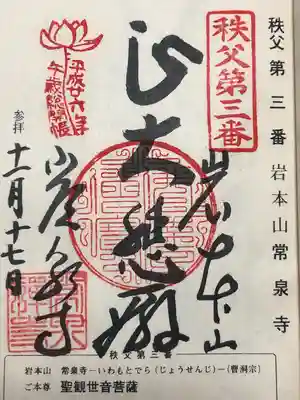 秩父第三番 岩本山常泉寺
秩父第三番
平成廿六年
午歳総開帳
岩本山
大悲殿
常泉寺
参拝
十一月十七日
秩父第三番
岩本山 常泉寺—いわもとでら(じょうせんじ)—(曹洞宗)
ご本尊 聖観世音菩薩